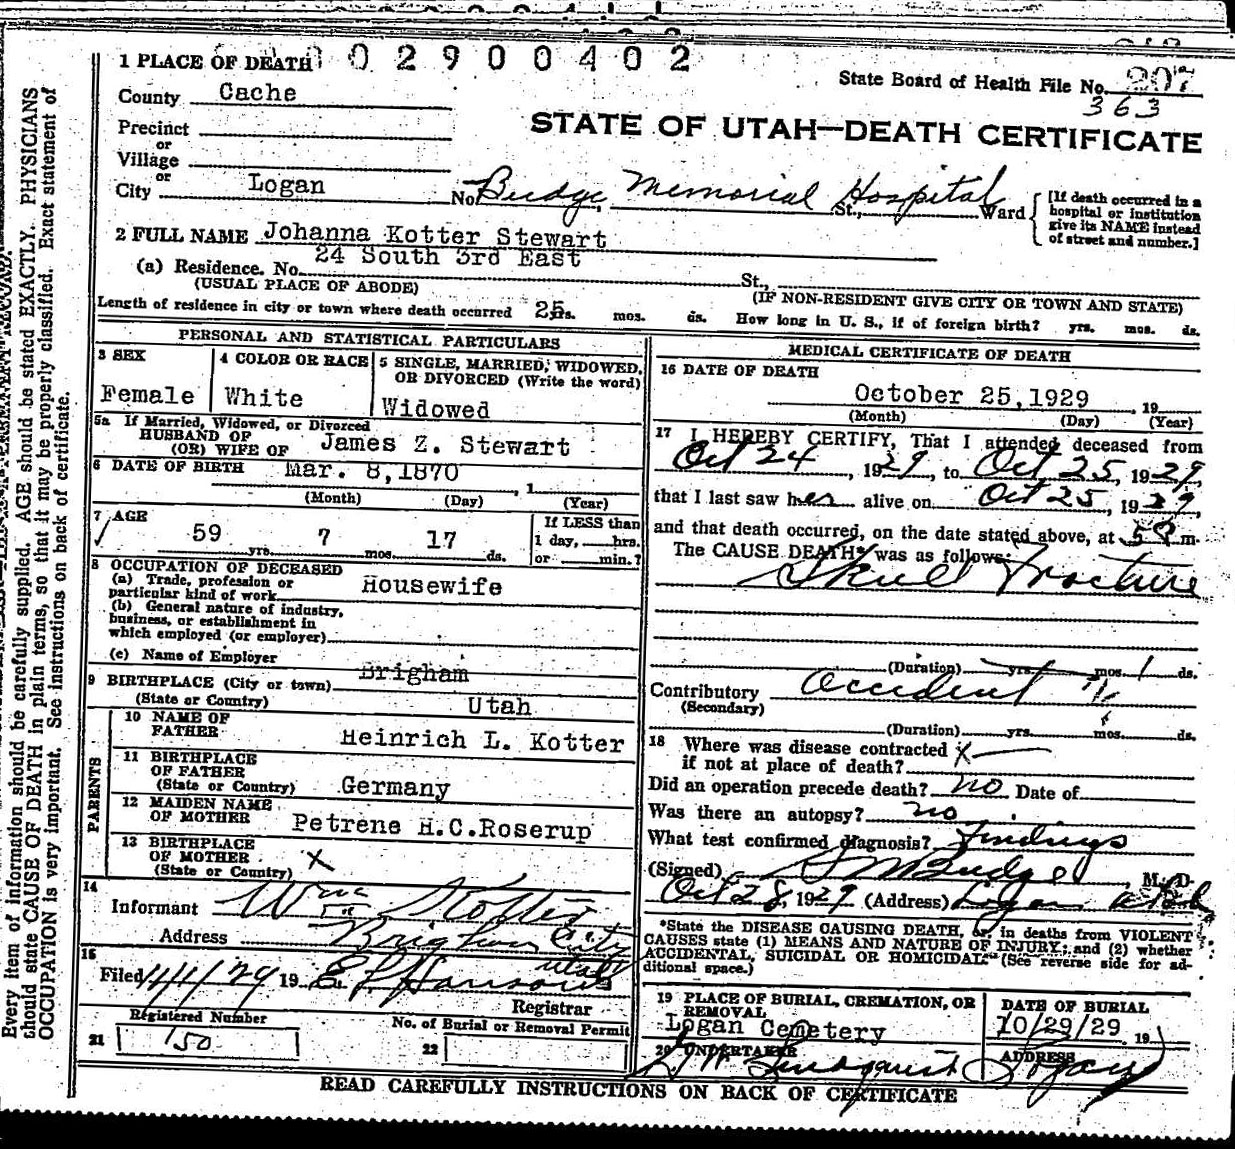 0 2 9 0 0 4 0 2
1 PLACE OF DEATH
State Board of Health File No. 207
363
County Cache
STATE OF UTAH—DEATH CERTIFICATE
Precinct
or
Village
or
City Logan
No. Budge Memorial Hospital St., Ward
[If death occurred in a
hospital or institution
give its NAME instead
of street and number.]
2 FULL NAME Johanna Kotter Stewart
(a) Residence. No. 24 South 3rd East St.,
(USUAL PLACE OF ABODE)
(IF NON-RESIDENT GIVE CITY OR TOWN AND STATE)
Length of residence in city or town where death occurred 25 yrs. mos. ds. How long in U. S., if of foreign birth? yrs. mos. ds.
PERSONAL AND STATISTICAL PARTICULARS
3 SEX
Female
4 COLOR OR RACE
White
5 SINGLE, MARRIED, WIDOWED,
OR DIVORCED (Write the word)
Widowed
5a If Married, Widowed, or Divorced
HUSBAND OF
(OR) WIFE OF James Z. Stewart
6 DATE OF BIRTH Mar. 8,1870 , 1
(Month) (Day) (Year)
7 AGE
59 yrs. 7 mos. 17 ds.
If LESS than
1 day, hrs.
or min.?
8 OCCUPATION OF DECEASED
(a) Trade, profession or
particular kind of work Housewife
(b) General nature of industry,
business, or establishment in
which employed (or employer)
(c) Name of Employer
9 BIRTHPLACE (City or town) Brigham
(State or Country) Utah
PARENTS
10 NAME OF
FATHER Heinrich L. Kotter
11 BIRTHPLACE
OF FATHER
(State or Country) Germany
12 MAIDEN NAME
OF MOTHER Petrene H.C.Roserup
13 BIRTHPLACE
OF MOTHER
(State or Country) X
14
Informant Wm Kotter
Address Brigham City
Utah
15
Filed 11/4/29 19 Registrar
21 Registered Number
150
22 No. of Burial or Removal Permit
MEDICAL CERTIFICATE OF DEATH
16 DATE OF DEATH
October 25,1929 , 19
(Month) (Day) (Year)
17 I HEREBY CERTIFY, That I attended deceased from
Oct 24 , 1929, to Oct 25, 1929,
that I last saw her alive on Oct 25, 1929,
and that death occurred, on the date stated above, at 5 P m.
The CAUSE DEATH* was as follows:
Skull Fracture
(Duration) yrs. mos. 1 ds.
Contributory Accident
(Secondary)
(Duration) yrs. mos. ds.
18 Where was disease contracted X
if not at place of death?
Did an operation precede death? no Date of
Was there an autopsy? no
What test confirmed diagnosis? Findings
(Signed) Budge M. D.
Oct 28, 1929 (Address) Logan Utah
*State the DISEASE CAUSING DEATH, or, in deaths from VIOLENT
CAUSES state (1) MEANS AND NATURE OF INJURY; and (2) whether
ACCIDENTAL, SUICIDAL OR HOMICIDAL. (See reverse side for ad-
ditional space.)
19 PLACE OF BURIAL, CREMATION, OR
REMOVAL
Logan Cemetery
DATE OF BURIAL
10/29/29 19
20 UNDERTAKER
Lindquist
ADDRESS
Logan
READ CAREFULLY INSTRUCTIONS ON BACK OF CERTIFICATE
Every item of information should be carefully supplied. AGE should be stated EXACTLY. PHYSICIANS
should state CAUSE OF DEATH in plain terms, so that it may be properly classified. Exact statement of
OCCUPATION is very important. See instructions on back of certificate.